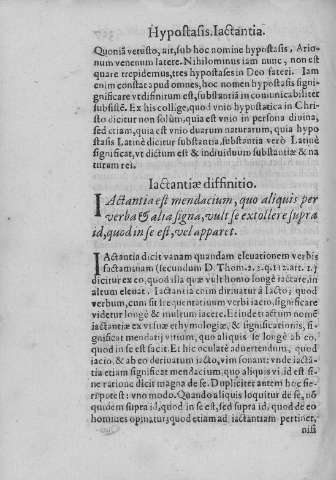 Hypostasis. Iactantia.
Quoniã vetusto, ait, sub hoc nomine hypostasis, Ario-
num venenum latere. Nihilominus iam nunc, non est
quare trepidemus, tres hypostases in Deo fateri. Iam
enim constat apud omnes, hoc nomen hypostasis signi-
gnificare vt difinitum est, substantiã incomunicabiliter
subsistẽ. Ex his collige, quod vnio hypostatica in Chri-
sto dicitur non solùm, quia est vnio in persona diuina,
sed etiam, quia est vnio duarum naturarum, quia hypo
stasis Latinè dicitur substantia, substantia verò Latinè
significat, vt dictum est & indiuiduum substantiæ & na
turam rei.
Iactantiæ diffinitio.
IActantia est mendacium, quo aliquis per
verba & alia signa, vult se extollere supra
id, quod in se est, vel apparet.
IActantia dicit vanam quandam eleuationem verbis
factam nam (secundum D. Thom. 2. 2. q. 112. art. 1.)
dicitur ex eo, quod illa quæ vult homo longè iactare, in
altum eleuat. Iactantia enim diriuatur à Iacto; quod
verbum, cum sit frequentatiuum verbi iacio, significare
videtur longè & multum iacere. Et inde tractum nomẽ
iactantiæ ex vi suæ ethymologiæ, & significationis, si-
gnificat mendatij vitium, quo aliquis se longè ab eo,
quod in se est facit. Et hic oculatè aduertendum, quod
iacio, & ab eo deriuatum iacto, vim sonant: vnde iactã-
tia etiam significat mendacium, quo aliquis vi, id est si-
ne ratione dicit magna de se. Dupliciter antem hoc fie-
ri potest: vno modo. Quando aliquis loquitur de se, nõ
quidem supra id, quod in se est, sed supra id, quod de eo
homines opinatur; quod etiam ad iactantiam pertinet,
nisi